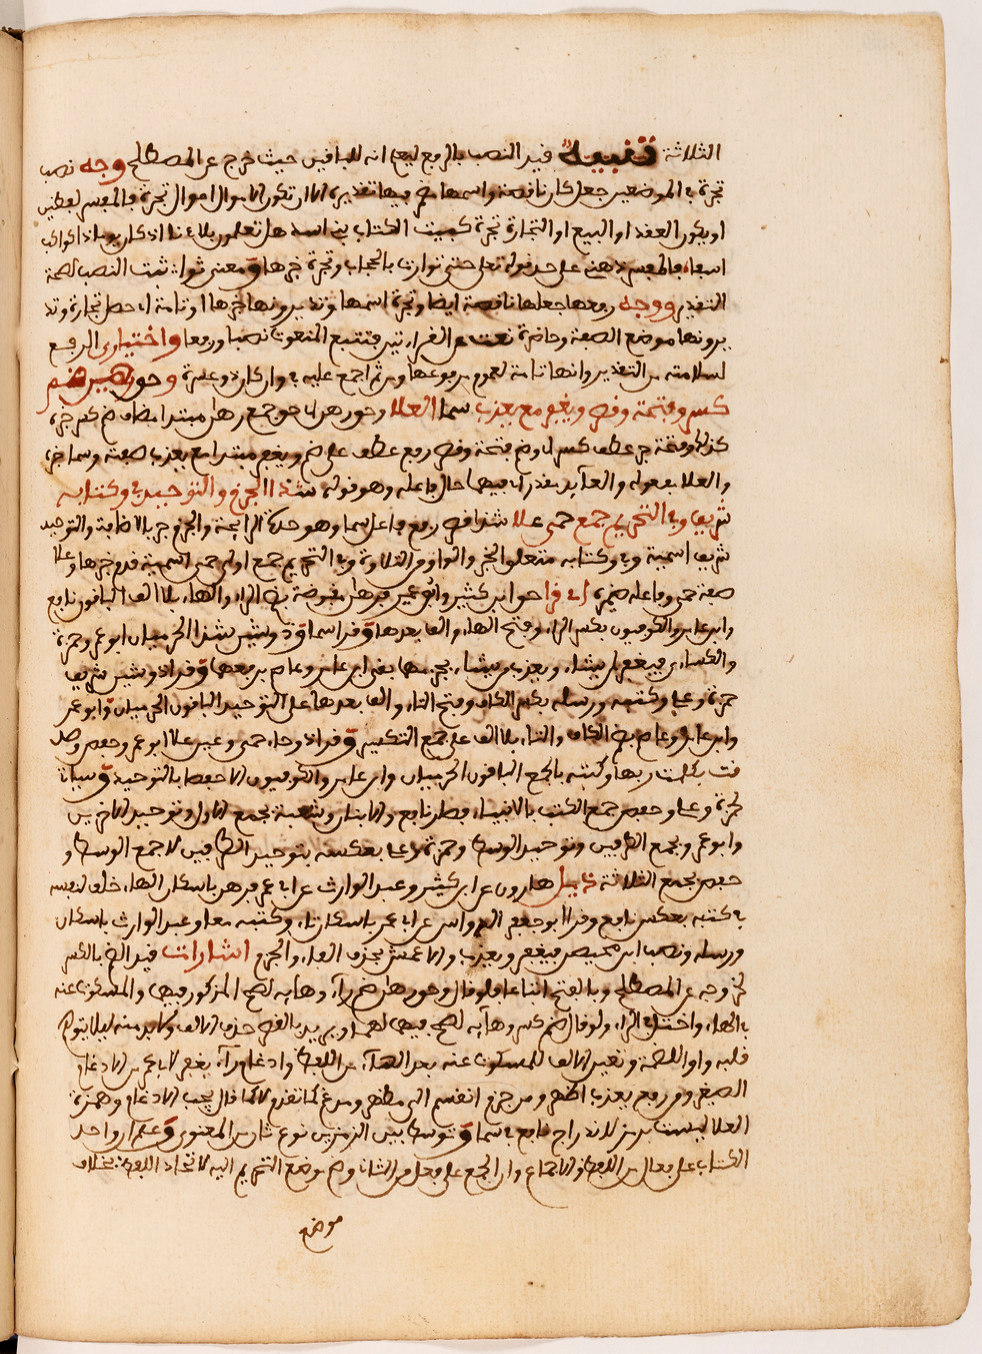 الثلاثة تنبيه قيد النصب بالرفع ليعلم انه للباقين حيث خرج عن المصطلح وجه نصب
تجرة في الموضعين جعل كان ناقصة واسمها فيها تقديره الا ان تكون الاموال اموال تجرة
او يكون العقد او البيع او التجارة تجرة كبيت الكتاب بني اسد هل تعلمون بلاءنا اذا كان يوما ذا كواكب
على حد قوله تعلى حتى توارت بالحجاب وتجرة خبرها ومعنى ثبت النصب لصحة
التقدير ووجه رفعها جعلها ناقصة ايضا وتجرة اسمها وتديرونها خبرها او تامة اي حصل تجارة وتد
يرونها موضع الصفة وحاضرة نعت على القراءتين فتتبع المنعوت نصبا ورفعا واختياري الرفع
لسلامته من التقدير وانها تامة لعموم مرفوعها ومن ثم اجمع عليه في وان كان ذو عسرة وحق رهن ضم
كسر وفتحة وقصر ويغفر مع يعذب سما العلا وحق رهن جمع رهن مبتدا مضاف ضم كسر خبره
كذلك وفتحة جر عطف كسر اي وضم فتحة وقصر رفع عطف على ضم ويغفر مبتدا مع يعذب صفته وسما خبره
والعلا مفعوله والعائد مقدر اي فيهما حال فاعله وهو قوله شذا الجزم والتوحيد في وكتابه
شريف وفي التحريم جمع حمى علا شذا قصر رفع فاعل سما وهو حدة الرائحة والجزم جر بالاضافة والتوحيد
شريف اسمية وفي وكتابه متعلق الخبر والواو من التلاوة وفي التحريم جمع اولى حمى اسمية قدم خبرها وعلا
صفة حمى وفاعله ضميره اي قرا حق ابن كثير وابو عمرو فرهن مقبوضة بضم الراء والهاء بلا الف الباقون نافع
وابن عامر والكوفيون بكسر الراء وفتح الهاء والف بعدها وقرا سما وذو شين شذا الحرميان ابو عمرو وحمزة
والكساءي فيغفر لمن يشاء ويعذب من يشاء بجزمهما بقي ابن عامر وعاصم برفعهما وقرا ذو شين شريف
حمزة وعلي وكتبه ورسله بكسر الكاف وفتح التاء والف بعدها على التوحيد الباقون الحرميان وابو عمرو
وابن عامر وعاصم بضم الكاف والتاء بلا الف على جمع التكسير وقرا ذو حاء حمى وعين علا ابو عمرو وحفص وصد
قت بكلمت ربها وكتبه بالجمع الباقون الحرميان وابن عامر والكوفيون الا حفصا بالتوحيد وسياتي
لحمزة وعلي وحفص جمع الكتب بالانبياء فصار نافع والابنان وشعبة بجمع الاول وتوحيد الاخرين
وابو عمرو بجمع الطرفين وتوحيد الوسطى وحمزة وعلي بعكسه بتوحيد الطرفين لا جمع الوسطى و
حفص بجمع الثلاثة تذييل هارون عن ابن كثير وعبد الوارث عن ابي عمرو فرهن باسكان الهاء خلف لنفسه
في كتبه بعكس نافع وقرا ابو جعفر الرواسي عن ابي عمرو باسكان تاء وكتبه معا وعبد الوارث باسكان
ورسله ونصب ابن محيصن فيغفر ويعذب والاعمش بحذف الفاء والجزم اشارات قيد الضم بالكسر
لخروجه عن المصطلح وبالفتح فلو قال وحق رهن ضم راء وهاءه لصح المذكور فيهما والمسكوت عنه
بالهاء واختل الراء ولو قال ضم كسر وهاءه لصح فيهما لهما ويريد بالقصر حذف الالف ولابد منه ليلا يتوهم
قلبه واوا للضمة وتعين الالف للمسكوت عنه بعد الهاء من اللفظ وادغام راء يغفر لابي عمرو من الادغام
الصغير ومن رفع يعذب اظهر ومن جزم انقسم الى مظهر ومدغم كما تقدم لا كما قال يجب الادغام وهمزة
العلا ليست برمز لاندراج نافع في سما وتوسط بين الرمزين نوع ثان من المعنوي وعلم ان واحد
الكتاب على فعال من اللفظ والاجماع وان الجمع على فعل من الثاني وضم موضع التحريم اليه لاتحاد اللفظ بخلاف
موضع